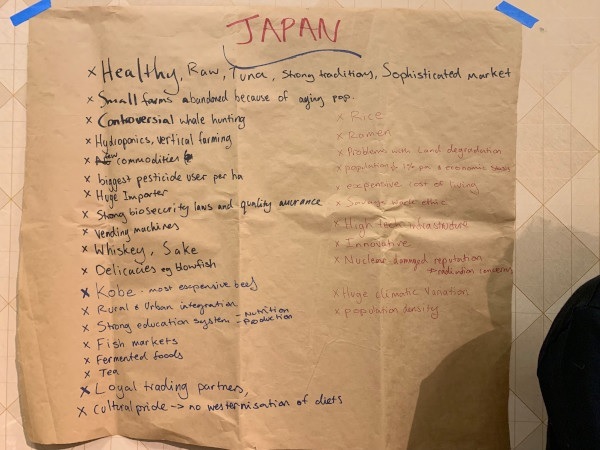 JAPAN
x Healthy, Raw, Tuna, Strong traditions, Sophisticated market
x Small farms abandoned because of aging pop.
x Controversial whale hunting
x Hydroponics, vertical farming
x few commodities
x biggest pesticide user per ha
x Huge Importer
x Strong biosecurity laws and quality assurance
x Vending machines
x Whiskey, Sake
x Delicacies eg blowfish
x Kobe - most expensive beef
x Rural & Urban integration
x Strong education system - Nutrition
- Production
x Fish markets
x Fermented foods
x Tea
x Loyal trading partners,
x Cultural pride -> no westernisation of diets
x Rice
x Ramen
x Problems with land degradation
x population & economic
x expensive cost of living
x work ethic
x High Tech infrastructure
x Innovative
x Nuclear-damaged reputation
-> radiation concerns
x Huge climatic variation
x population density